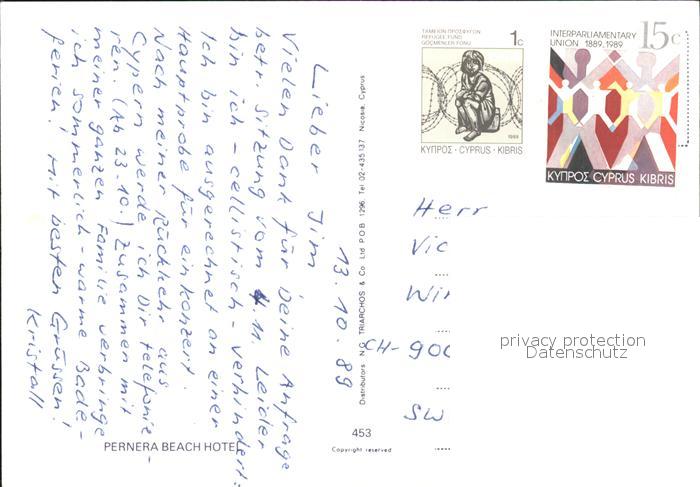 13.10.89
Lieber Jim
Vielen Dank für Deine Anfrage
betr. Sitzung vom 4.11. Leider
bin ich - cellistisch - verhindert:
Ich bin ausgerechnet an einer
Hauptprobe für ein Konzert.
Nach meiner Rückkehr aus
Cypern werde ich Dir telefonie-
ren. (Ab 23.10.) Zusammen mit
meiner ganzen Familie verbringe
ich sommerlich-warme Bade-
ferien! Mit besten Grüssen!
Kristall
PERNERA BEACH HOTEL
Distributors N.G. TRIARCHOS & Co. Ltd P.O.B. 1296 Tel 02-435137 Nicosia, Cyprus
453
Copyright reserved
ΤΑΜΕΙΟΝ ΠΡΟΣΦΥΓΩΝ
REFUGEE FUND
GÖÇMENLER FONU
1c
1989
ΚΥΠΡΟΣ · CYPRUS · KIBRIS
INTERPARLIAMENTARY
UNION 1889-1989
15c
ΚΥΠΡΟΣ CYPRUS KIBRIS
Herr
Vic
Wi
CH-900
SW
privacy protection
Datenschutz